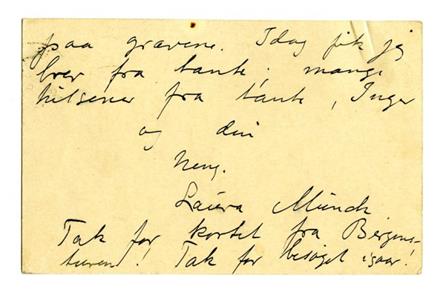 paa graven. Idag fik jeg
brev fra tante; mange
hilsener fra tante, Inger
og din
heng.
Laura Munch
Tak for kortet fra Bergens-
turen! Tak for besøget igaar!